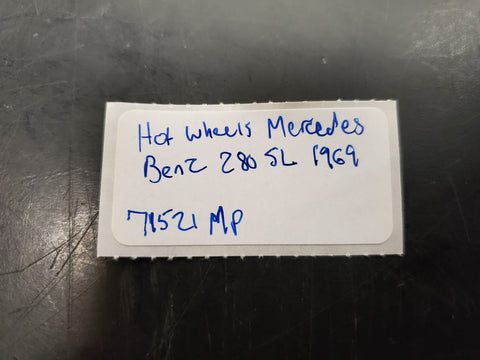 Hot Wheels Mercedes
Benz 280 SL 1969
71521 MP